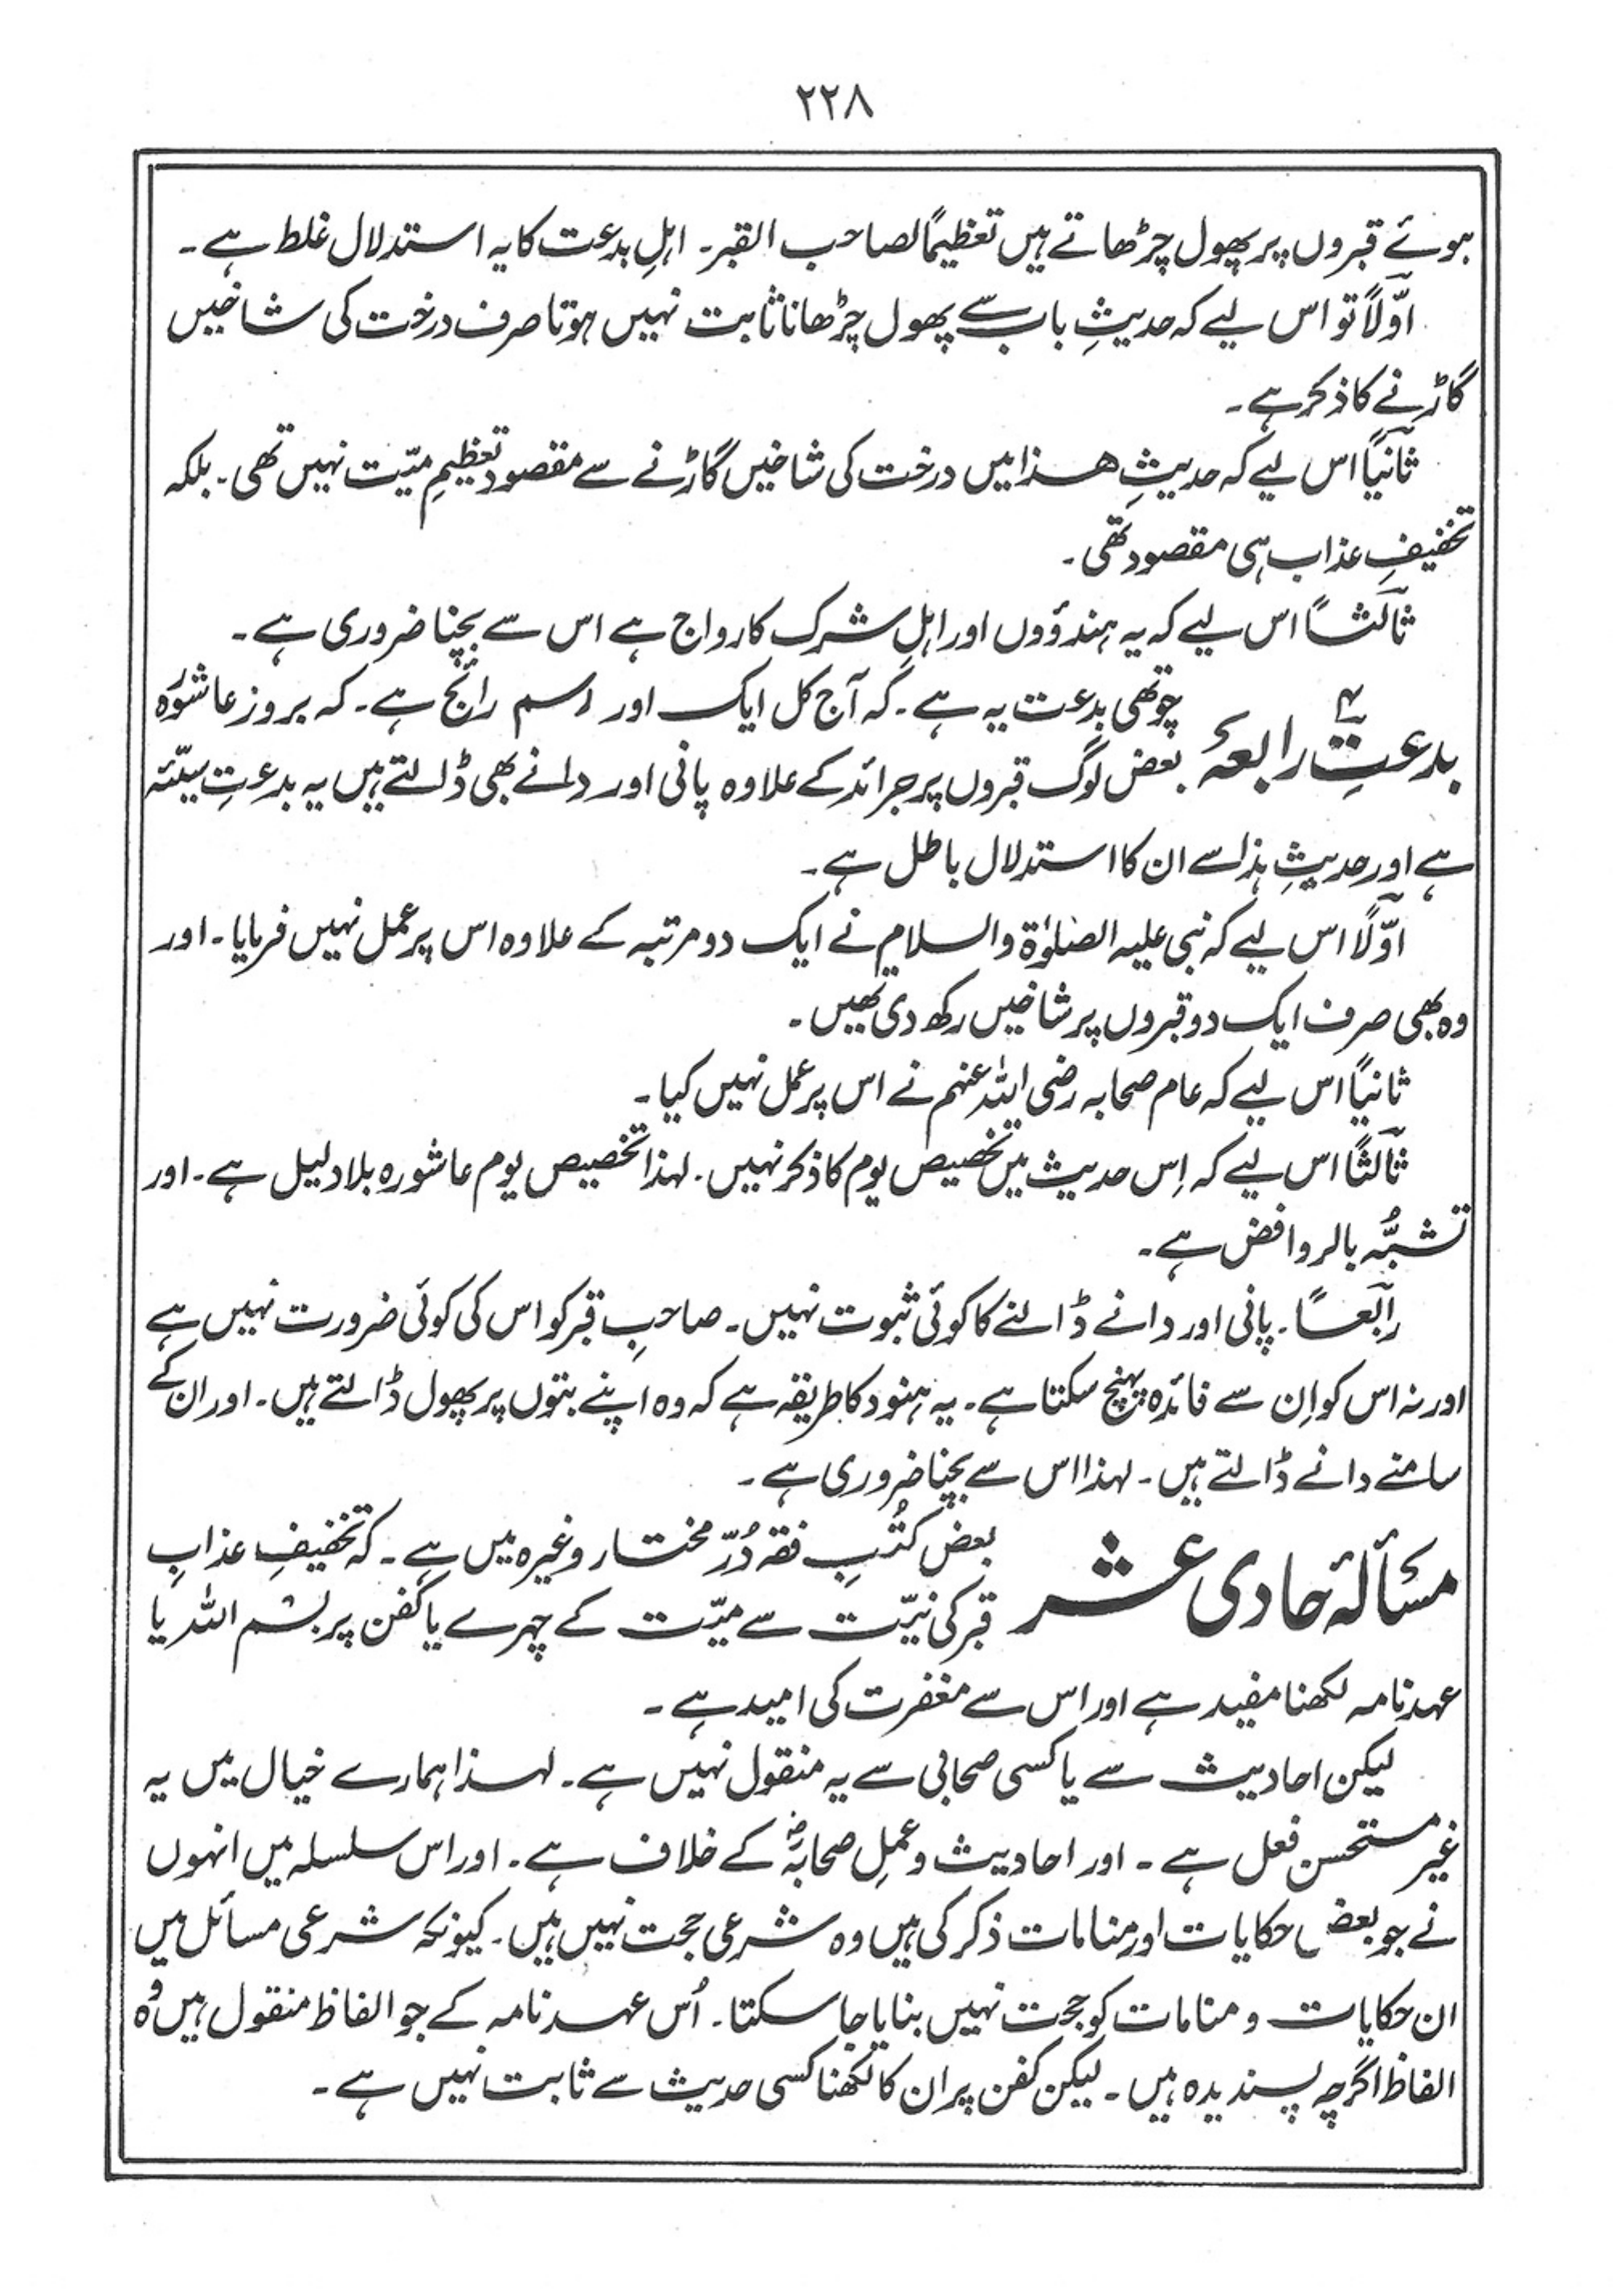 ۲۲۸
ہوئے قبروں پر پھول چڑھاتے ہیں تعظیمًا لصاحب القبر۔ اہلِ بدعت کا یہ استدلال غلط ہے۔
اوّلًا تو اس لیے کہ حدیثِ باب سے پھول چڑھانا ثابت نہیں ہوتا صرف درخت کی شاخیں
گاڑنے کا ذکر ہے۔
ثانیًا اس لیے کہ حدیثِ ھٰذا میں درخت کی شاخیں گاڑنے سے مقصود تعظیمِ میّت نہیں تھی۔ بلکہ
تخفیفِ عذاب ہی مقصود تھی۔
ثالثًا اس لیے کہ یہ ہندؤوں اور اہلِ شرک کا رواج ہے اس سے بچنا ضروری ہے۔
بدعتِ رابعہ ۴ چوتھی بدعت یہ ہے۔ کہ آج کل ایک اور رسم رائج ہے۔ کہ بروز عاشورہ
بعض لوگ قبروں پر جرائد کے علاوہ پانی اور دانے بھی ڈالتے ہیں یہ بدعتِ سیّئہ
ہے اور حدیثِ ہذا سے ان کا استدلال باطل ہے۔
اوّلًا اس لیے کہ نبی علیہ الصلوٰۃ والسلام نے ایک دو مرتبہ کے علاوہ اس پر عمل نہیں فرمایا۔ اور
وہ بھی صرف ایک دو قبروں پر شاخیں رکھ دی تھیں۔
ثانیًا اس لیے کہ عام صحابہ رضی اللہ عنہم نے اس پر عمل نہیں کیا۔
ثالثًا اس لیے کہ اِس حدیث میں تخصیص یوم کا ذکر نہیں۔ لہذا تخصیص یوم عاشورہ بلا دلیل ہے۔ اور
تشبُّہ بالروافض ہے۔
رابعًا۔ پانی اور دانے ڈالنے کا کوئی ثبوت نہیں۔ صاحبِ قبر کو اس کی کوئی ضرورت نہیں ہے
اور نہ اس کو اِن سے فائدہ پہنچ سکتا ہے۔ یہ ہنود کا طریقہ ہے کہ وہ اپنے بتوں پر پھول ڈالتے ہیں۔ اور ان کے
سامنے دانے ڈالتے ہیں۔ لہذا اس سے بچنا ضروری ہے۔
مسألۂ حادی عشر بعض کُتُبِ فقہ دُرّ مختار وغیرہ میں ہے۔ کہ تخفیفِ عذابِ
قبر کی نیّت سے میّت کے چہرے یا کفن پر بسم اللہ یا
عہد نامہ لکھنا مفید ہے اور اس سے مغفرت کی امید ہے۔
لیکن احادیث سے یا کسی صحابی سے یہ منقول نہیں ہے۔ لہٰذا ہمارے خیال میں یہ
غیر مستحسن فعل ہے۔ اور احادیث و عملِ صحابہؓ کے خلاف ہے۔ اور اس سلسلہ میں انہوں
نے جو بعض حکایات اور منامات ذکر کی ہیں وہ شرعی حجت نہیں ہیں۔ کیونکہ شرعی مسائل میں
ان حکایات و منامات کو حجت نہیں بنایا جا سکتا۔ اُس عہد نامہ کے جو الفاظ منقول ہیں وُہ
الفاظ اگرچہ پسندیدہ ہیں۔ لیکن کفن پر ان کا لکھنا کسی حدیث سے ثابت نہیں ہے۔